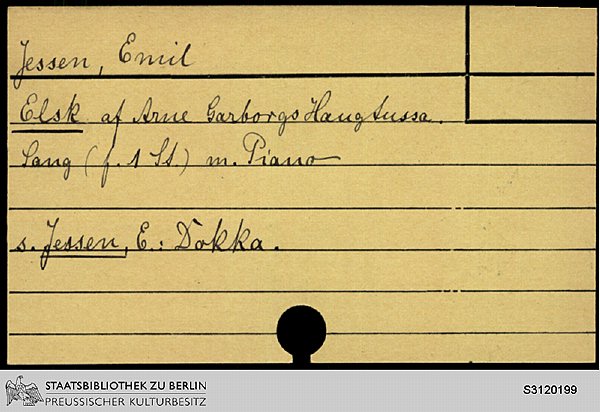 Jessen, Emil
Elsk af Arne Garborgs Haugtussa.
Sang (f. 1 St.) m. Piano
s. Jessen, E.: Dokka.
STAATSBIBLIOTHEK ZU BERLIN
PREUSSISCHER KULTURBESITZ
S3120199